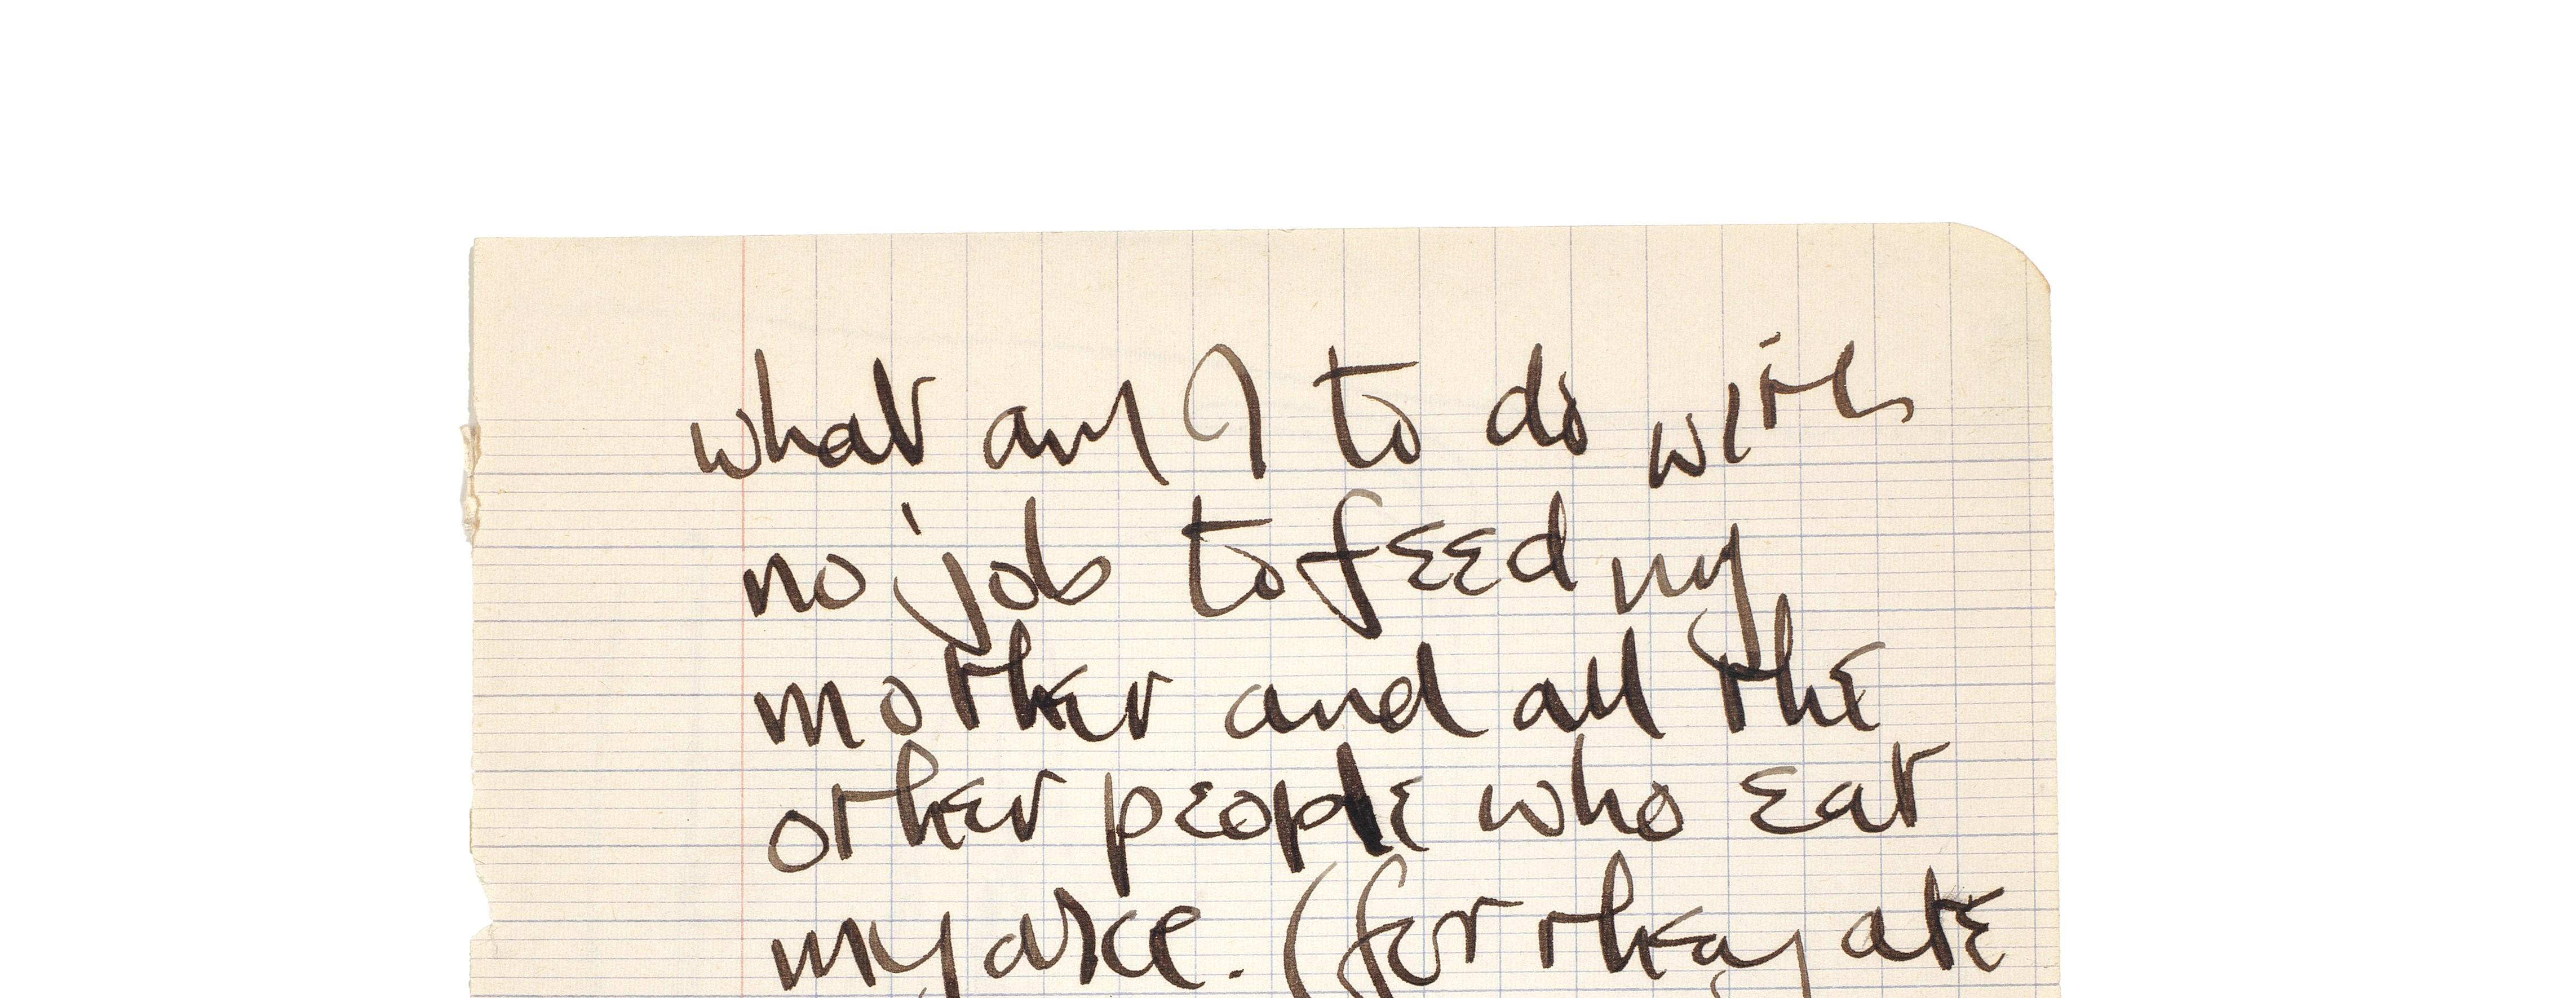 what am I to do with
no job to feed my
mother and all the
other people who eat
my arse. (for they ate